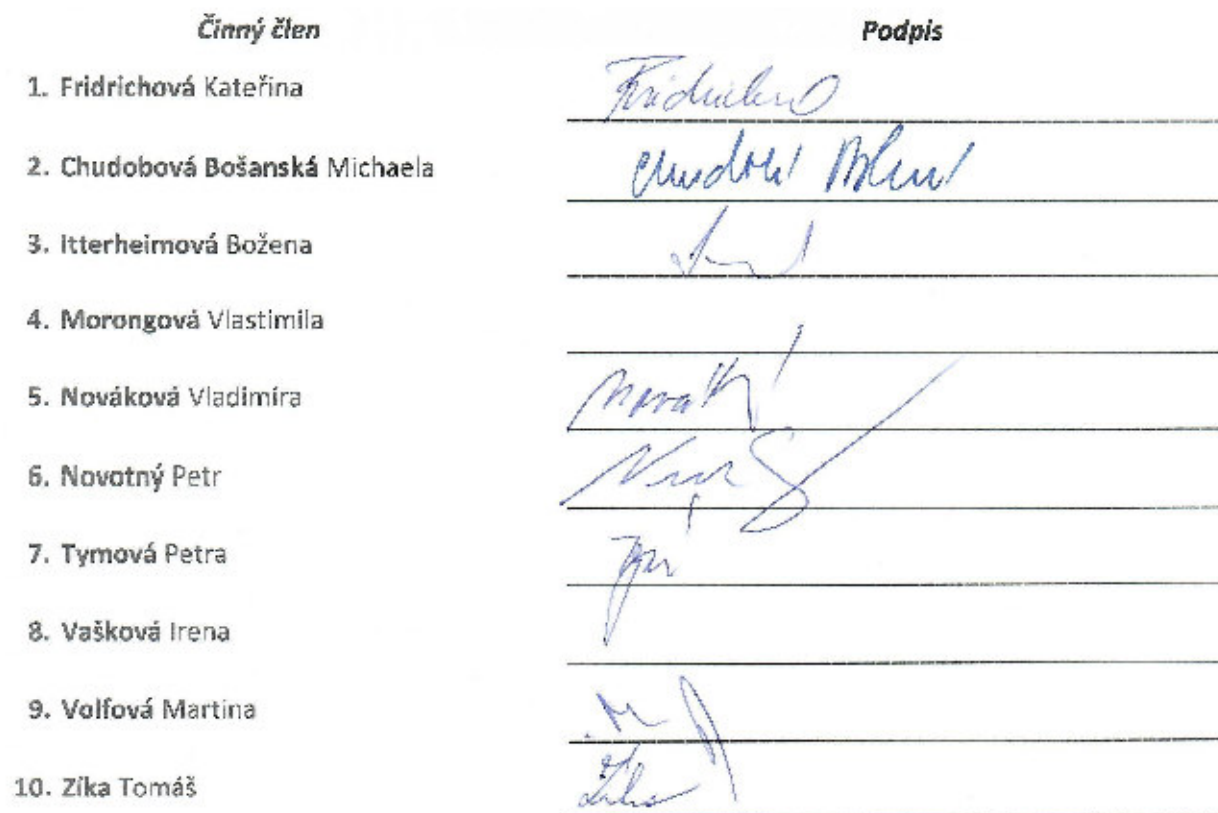 Činný člen Podpis
1. Fridrichová Kateřina Fridrichová
2. Chudobová Bošanská Michaela
3. Itterheimová Božena
4. Morongová Vlastimila
5. Nováková Vladimíra
6. Novotný Petr
7. Tymová Petra
8. Vašková Irena
9. Volfová Martina
10. Zíka Tomáš Zíka